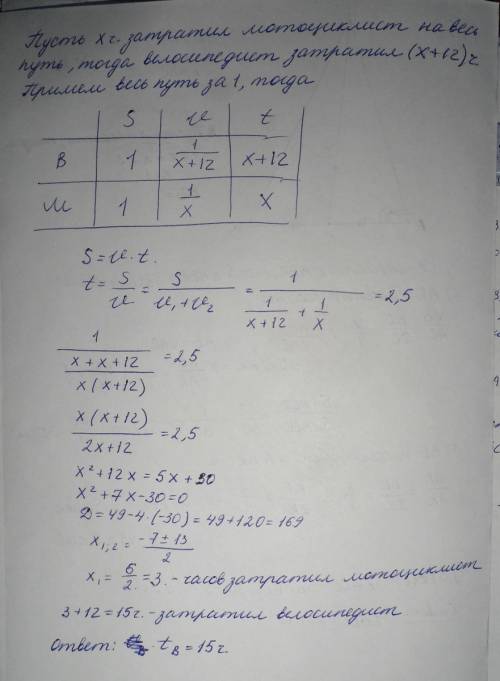 Пусть х ч. затратил мотоциклист на весь
путь, тогда велосипедист затратил (х+12) ч
Примем весь путь за 1, тогда
S v t
В 1 1/(x+12) x+12
М 1 1/x x
S = v · t.
t = S/v = S/(v₁+v₂) = 1/(1/(x+12) + 1/x) = 2,5
1/((x+x+12)/(x(x+12))) = 2,5
x(x+12)/(2x+12) = 2,5
x² + 12x = 5x + 30
x² + 7x - 30 = 0
D = 49 - 4·(-30) = 49 + 120 = 169
x₁,₂ = (-7 ± 13)/2
x₁ = 6/2 = 3. - часов затратил мотоциклист
3 + 12 = 15 ч. - затратил велосипедист
Ответ: t_в = 15 ч.